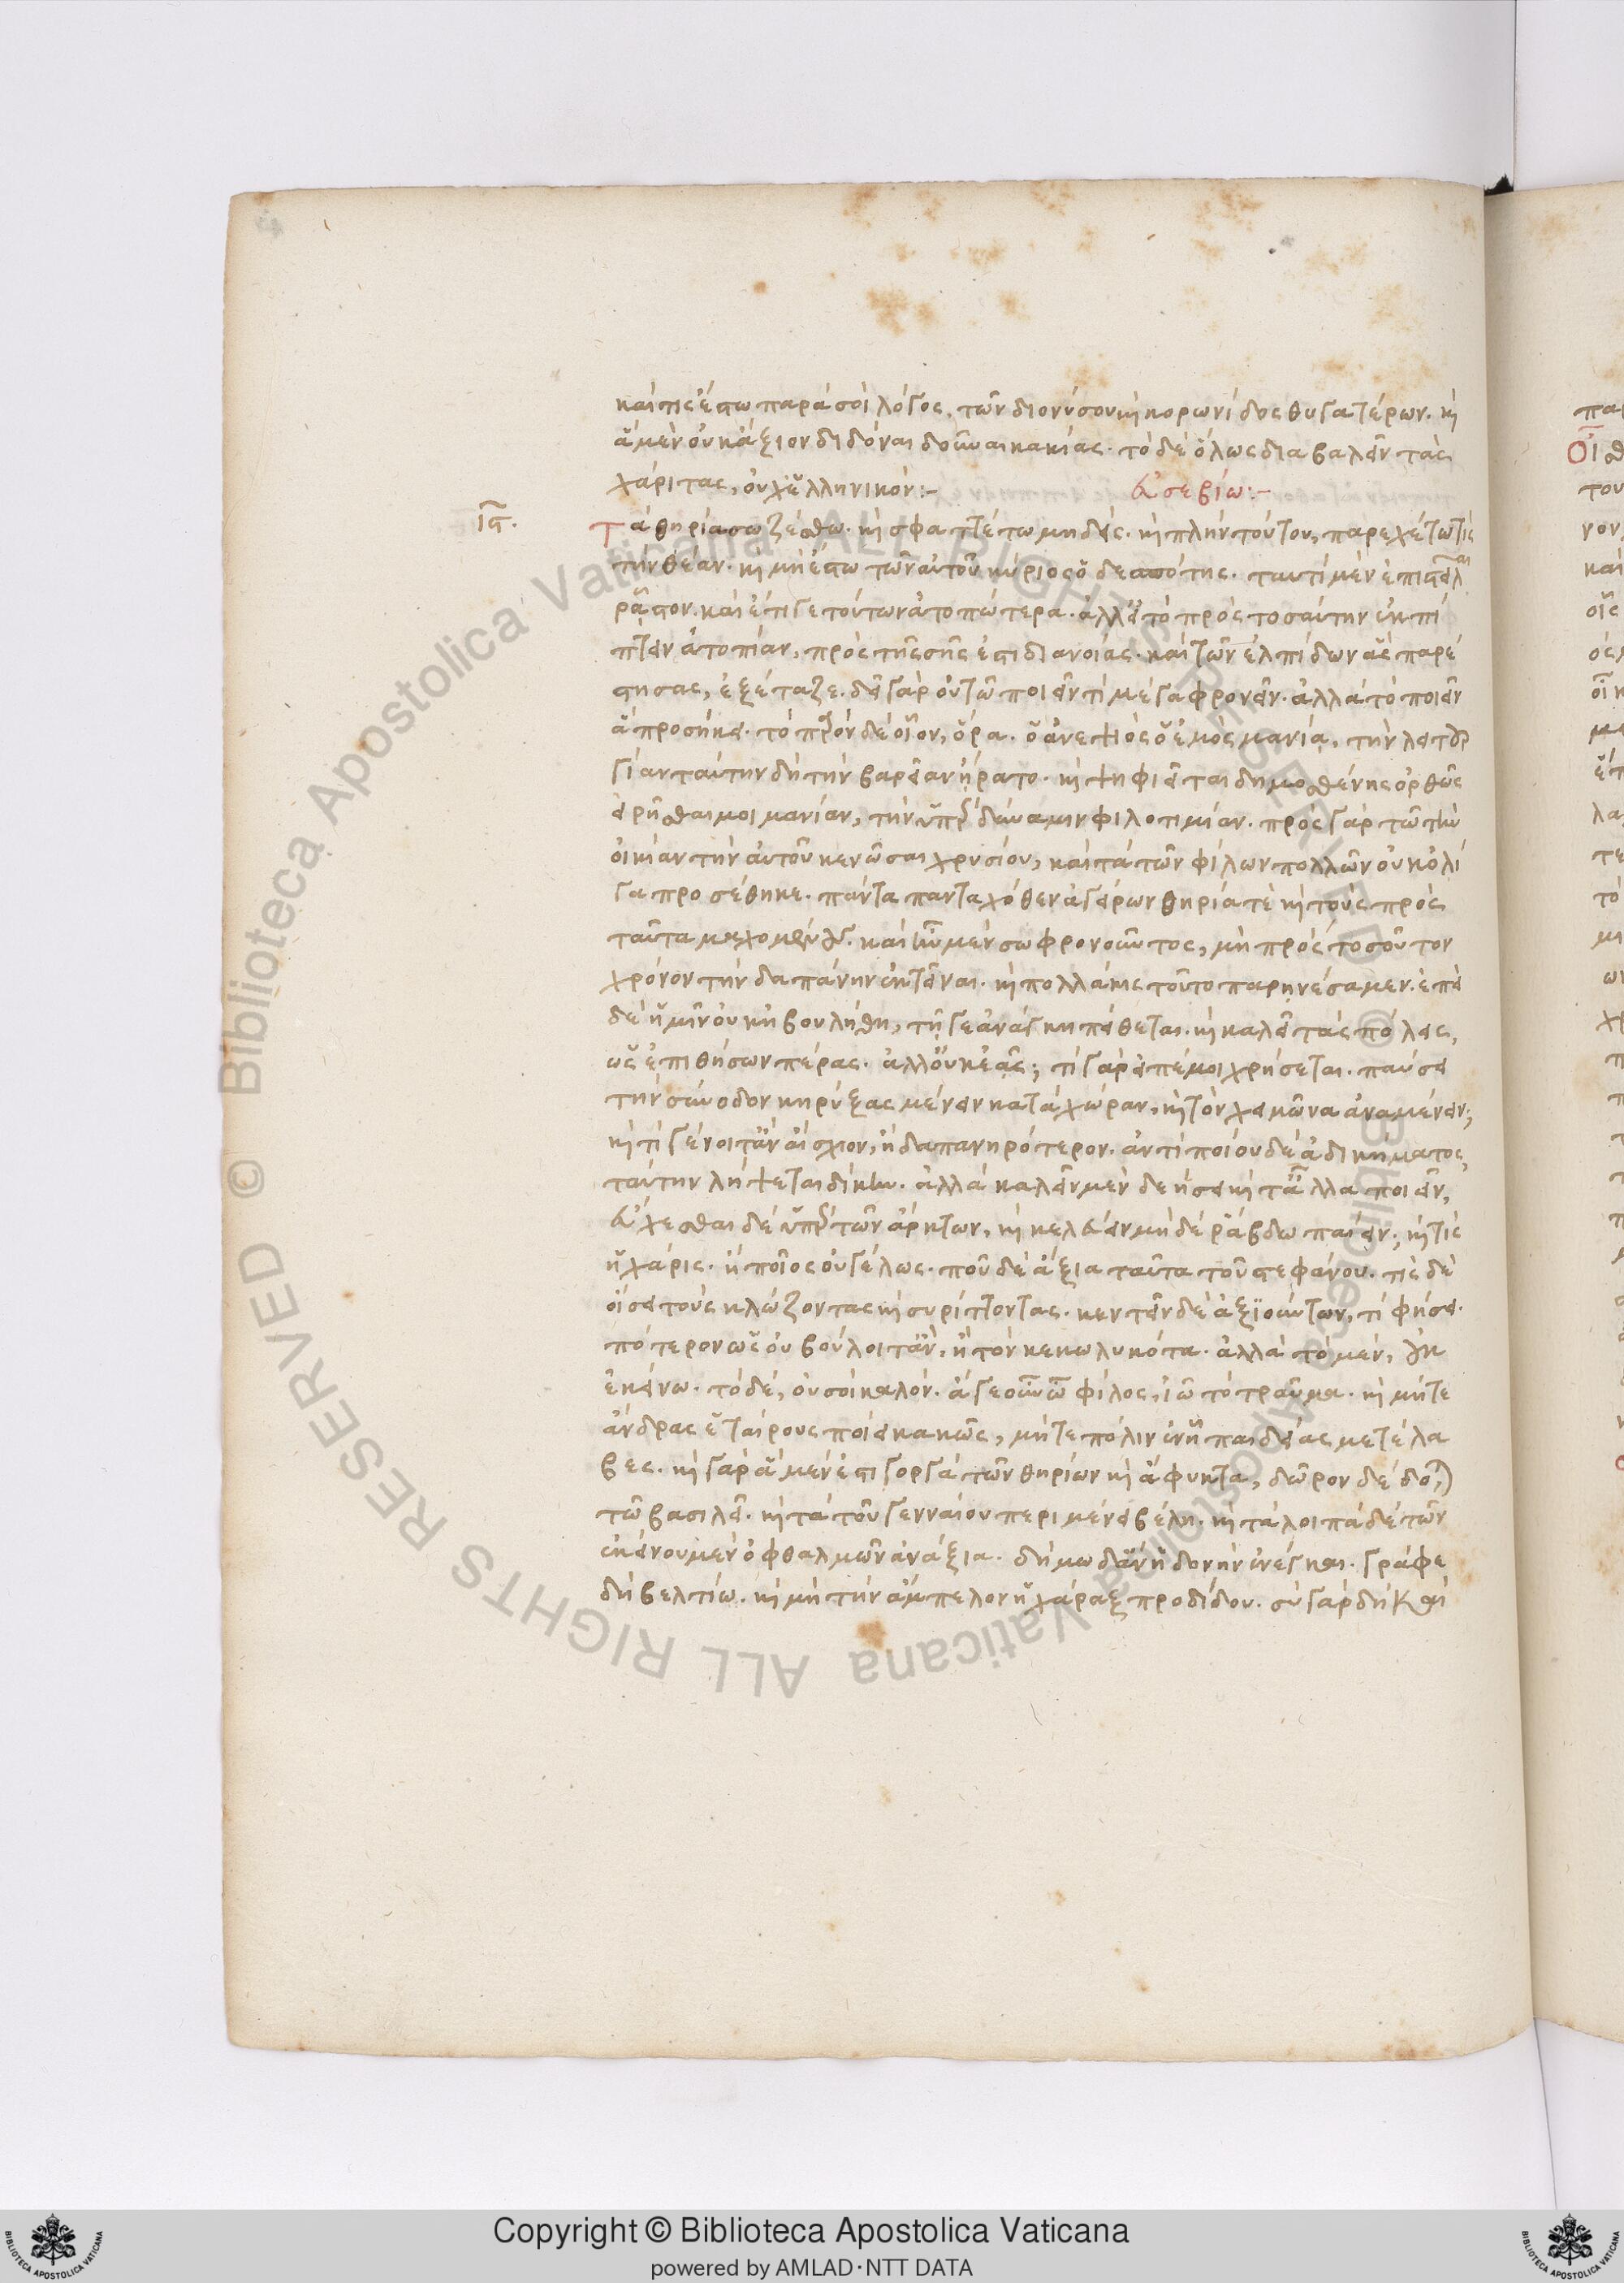 καί τις ἔστω παρὰ σοὶ λόγος, τῶν διονύσου καὶ κορωνίδος θυγατέρων. καὶ
ἃ μὲν οὐκ ἄξιον διδόναι δοῦναι κακίας. τὸ δὲ ὅλως διαβαλεῖν τὰς
χάριτας, οὐχ ἑλληνικόν:- εὐσεβίω:-
ις. Τὰ θηρία σωζέσθω. καὶ σφαττέτω μηδείς. καὶ πλὴν τούτου, παρεχέτω τις
τὴν θέαν. καὶ μὴ ἔστω τῶν αὐτοῦ κύριος ὁ δεσπότης. ταυτὶ μὲν ἐπιστεῖλαι
ρᾷστον. καὶ ἔτι γε τούτων ἀτοπώτερα. ἀλλ' εἰ τὸ πρὸς τοσαύτην ἐκπί
πτειν ἀτοπίαν, πρὸς τῆς σῆς ἐστι διανοίας. καὶ τῶν ἐλπίδων ἃς παρέ
στησας, ἐξέταζε. δεῖ γὰρ οὐ τῶ ποιεῖν τί μέγα φρονεῖν. ἀλλὰ τὸ ποιεῖν
ἃ προσήκει. τὸ παρὸν δὲ οἷον, ὅρα. ὁ ἀνεψιὸς ὁ ἐμὸς μανία, τὴν λειτουρ
γίαν ταύτην δὴ τὴν βαρεῖαν ἤρατο. καὶ ψηφιεῖται δημοσθένης ὀρθῶς
εἰρῆσθαι μοι μανίαν, τὴν ὑπὲρ δύναμιν φιλοτιμίαν. πρὸς γὰρ τῶ τὴν
οἰκίαν τὴν αὐτοῦ κενῶσαι χρυσίου, καὶ τὰ τῶν φίλων πολλῶν οὐκ ὀλί
γα προσέθηκε. πάντα πανταχόθεν ἀγείρων θηρία τὲ καὶ τοὺς πρὸς
ταῦτα μαχομένους. καὶ ἦν μὲν σωφρονοῦντος, μὴ πρὸς τοσοῦτον
χρόνον τὴν δαπάνην ἐκτεῖναι. καὶ πολλάκις τοῦτο παρηνέσαμεν. ἐπεὶ
δὲ ἡμῖν οὐκ ἠβουλήθη, τῇ γε ἀνάγκῃ πείθεται. καὶ καλεῖ τὰς πόλεις,
ὡς ἐπιθήσων πέρας. ἀλλ' οὐκ ἐᾷς; τί γὰρ εἰπέ μοι χρήσεται. παύσει
τὴν σύνοδον κηρύξας μένειν κατὰ χώραν, καὶ τὸν χειμῶνα ἀναμένειν;
καὶ τί γένοιτ' ἂν αἴσχιον, ἢ δαπανηρότερον. ἀντὶ ποίου δὲ ἀδικήματος,
ταύτην λήψεται δίκην. ἀλλὰ καλεῖν μὲν δεήσει καὶ τἄλλα ποιεῖν,
εὔχεσθαι δὲ ὑπὲρ τῶν ἄρκτων, καὶ κελεύειν μηδὲ ῥάβδω παίειν; καὶ τίς
ἡ χάρις. ἢ ποῖος οὐ γέλως. ποῦ δὲ ἄξια ταῦτα τοῦ στεφάνου. τίς δὲ
οἴσει τοὺς κλώζοντας καὶ συρίττοντας. κεντεῖν δὲ ἀξιούντων, τί φήσει.
πότερον ὡς οὐ βούλοιτ' ἂν, ἢ τὸν κεκωλυκότα. ἀλλὰ τὸ μὲν, οὐκ
ἐκείνω. τὸ δὲ, οὐ σοὶ καλόν. ἄγε οὖν ὦ φίλος, ἰῶ τὸ τραῦμα. καὶ μήτε
ἄνδρας ἑταίρους ποίει κακῶς, μήτε πόλιν ἐν ᾗ παιδείας μετέλα
βες. καὶ γὰρ ἃ μέν ἐστι γοργὰ τῶν θηρίων καὶ ἄφυκτα, δῶρον δέδοται
τῶ βασιλεῖ. καὶ τὰ τοῦ γενναίου περιμένει βέλη. καὶ τὰ λοιπὰ δὲ τῶν
ἐκείνου μὲν ὀφθαλμῶν ἀνάξια. δήμω δ' ἂν ἡδονὴν ἐνέγκαι. γράφε
δὴ βελτίω. καὶ μὴ τὴν ἄμπελον ἡ χάραξ προδίδου. σὺ γὰρ δὴ καὶ
Copyright © Biblioteca Apostolica Vaticana
powered by AMLAD·NTT DATA